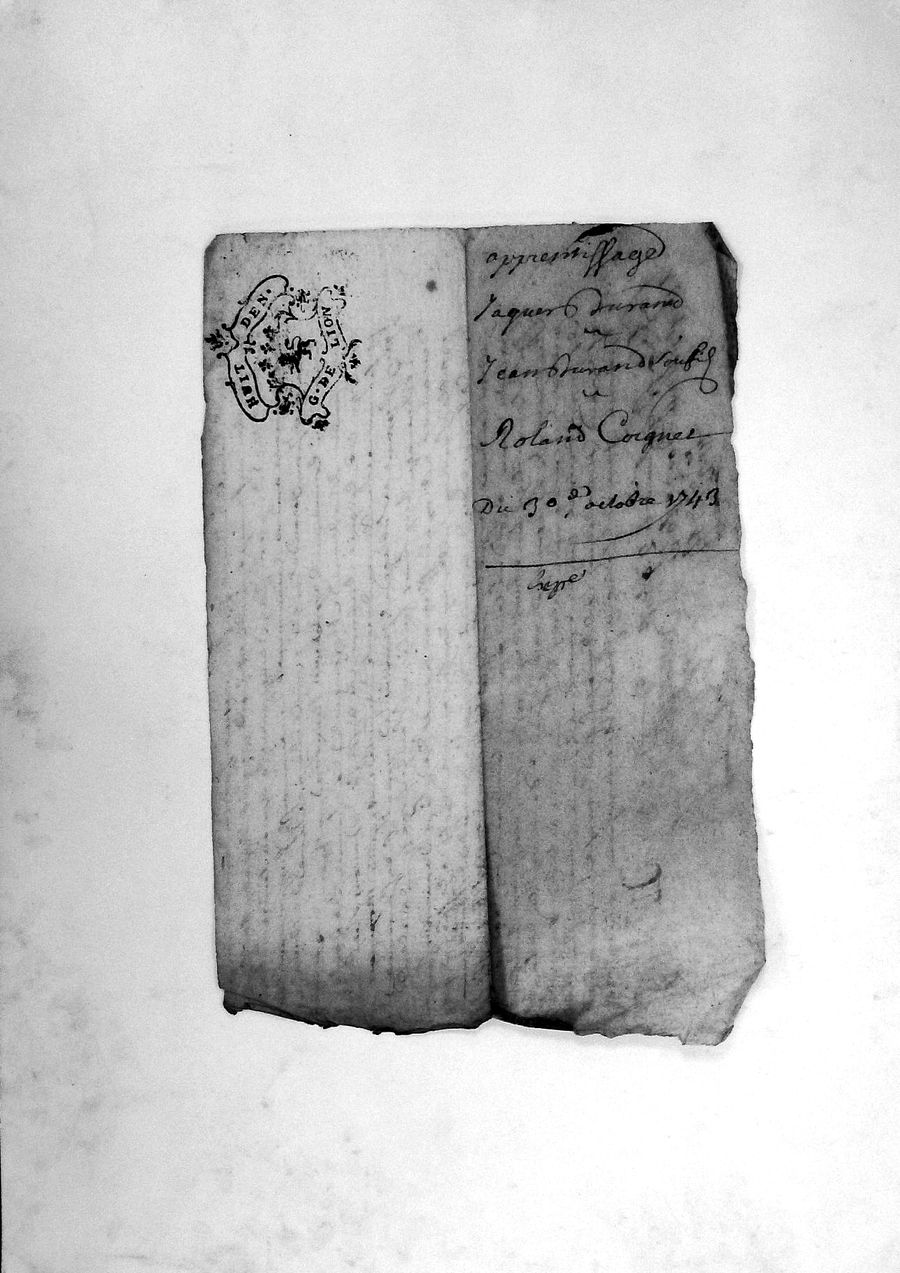 HUIT DEN.
G. DE LION
apprentissage
Jaques Durand
Jean Durand
Roland Coignet
Du 30e octobre 1743
Exppé